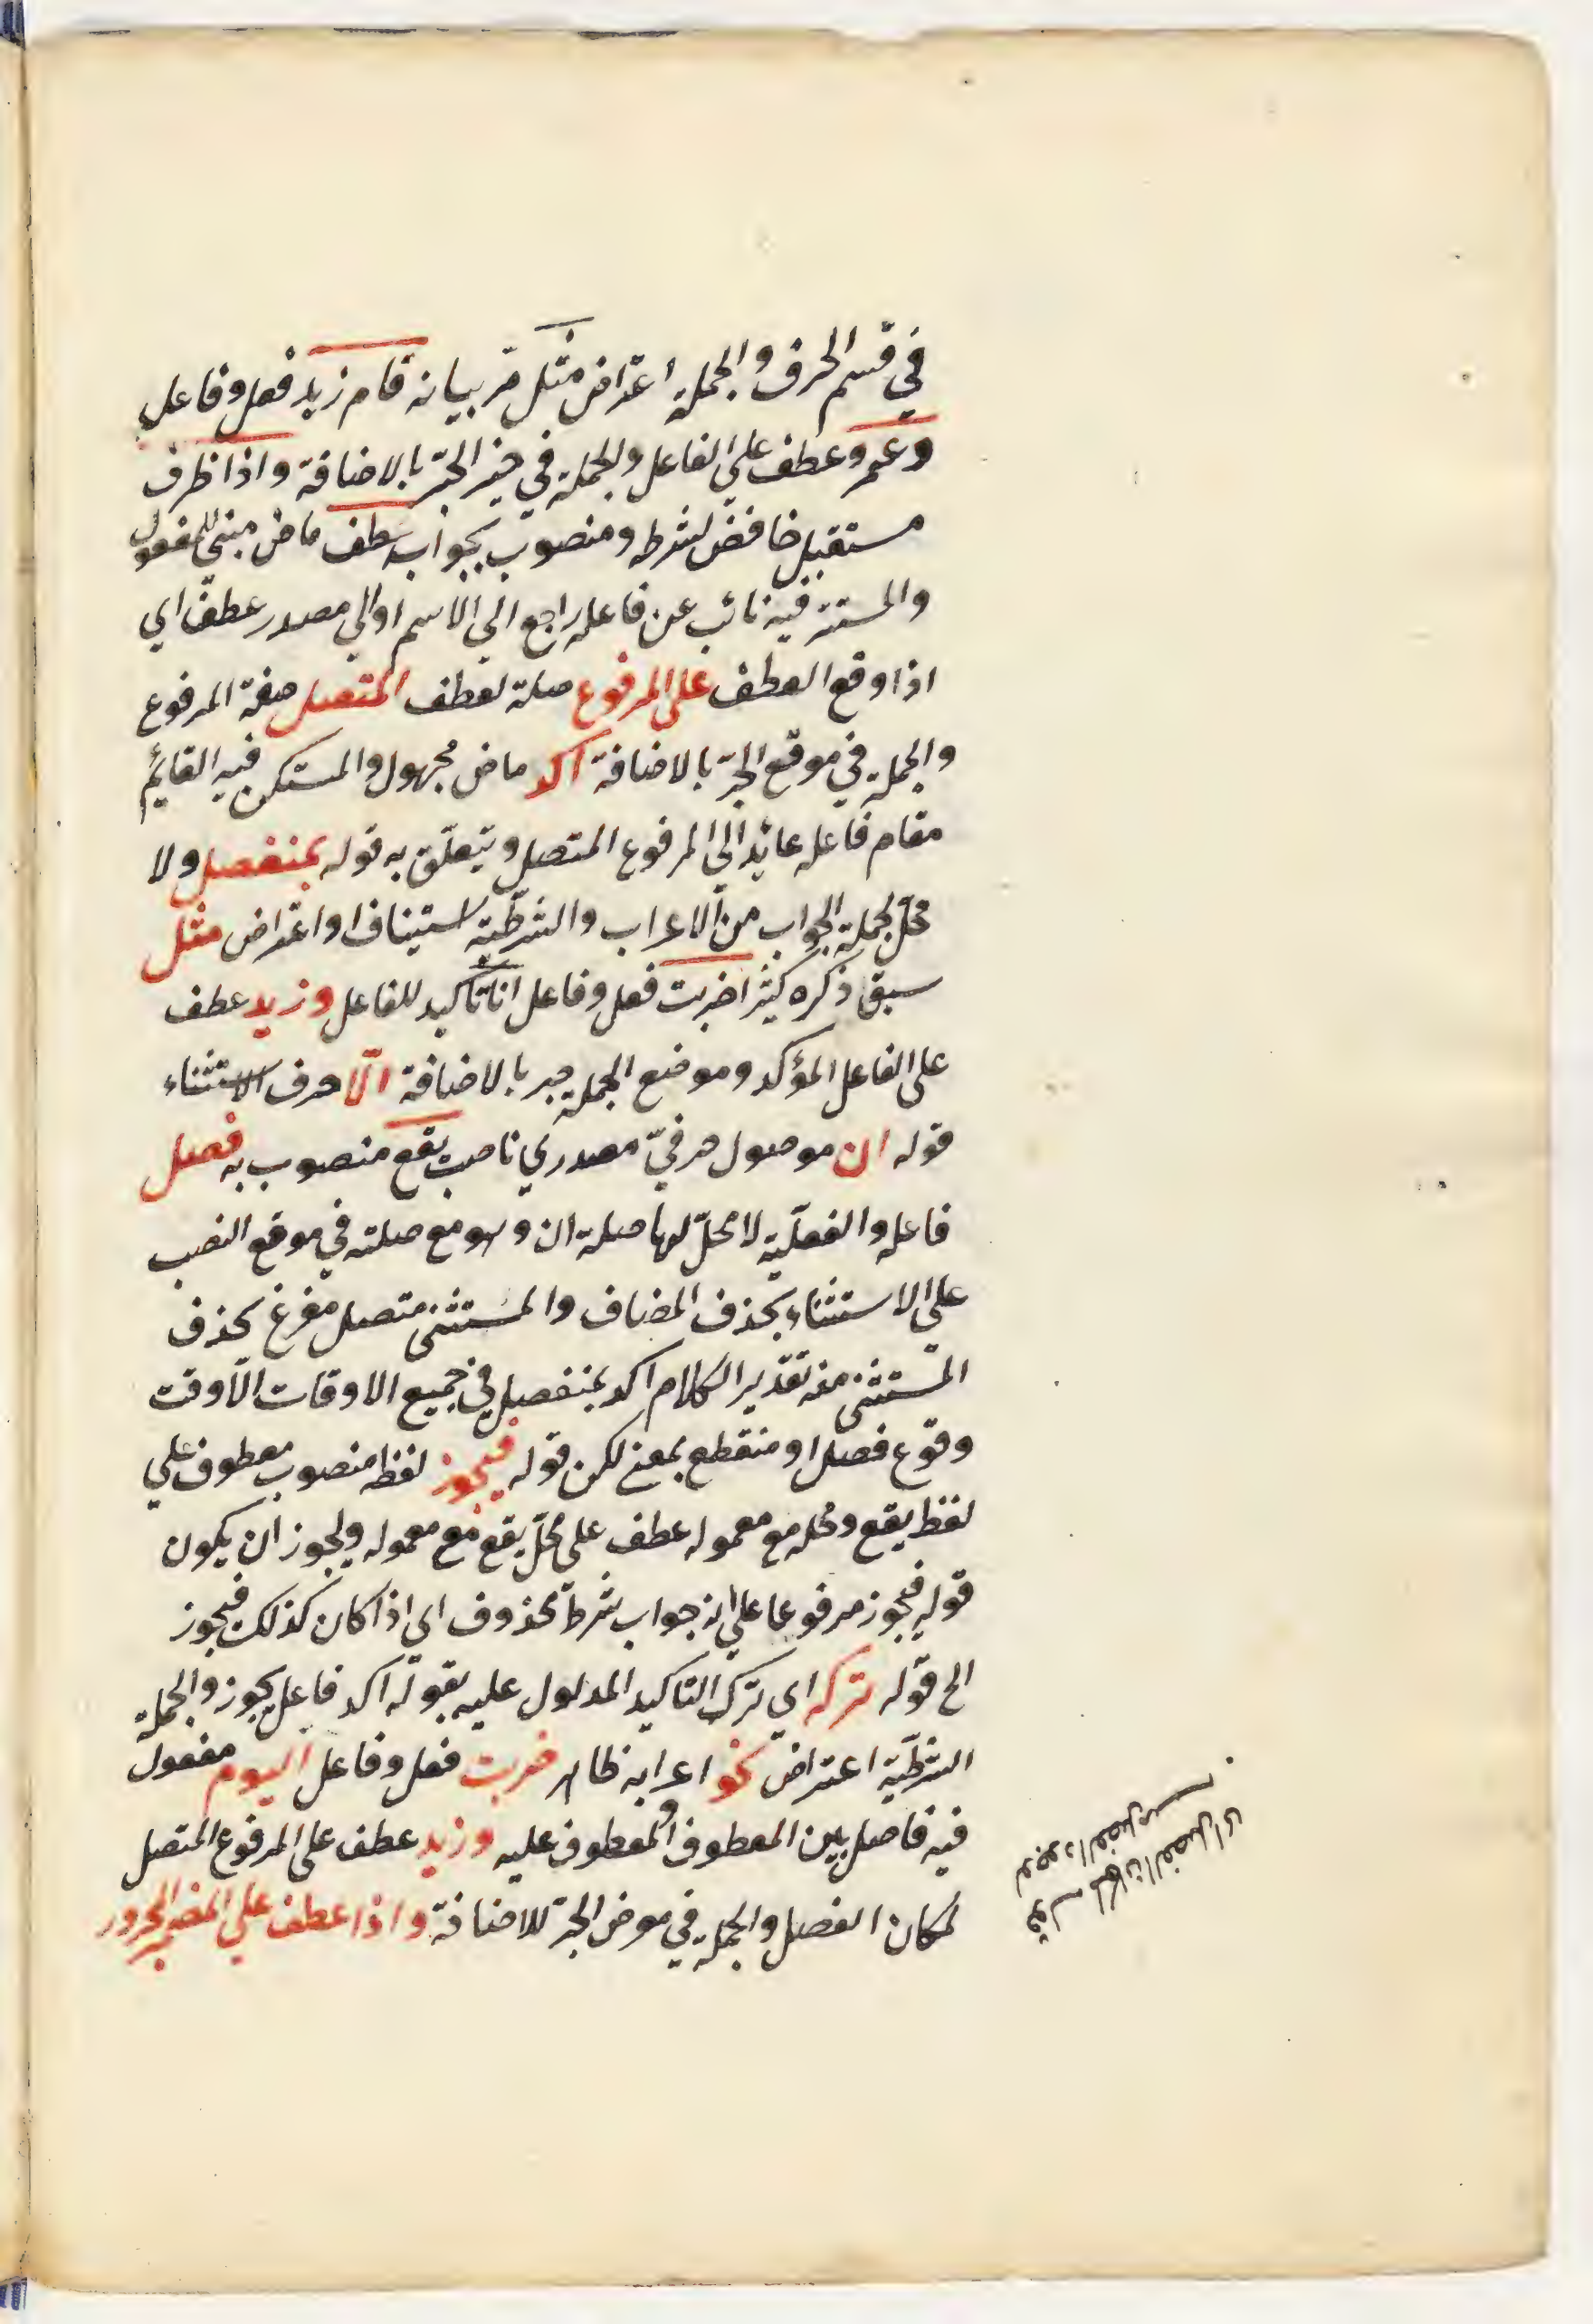 في قسم الحرف والجملة اعتراض مثل مرّ بيانه قام زيد فعل وفاعل
وعمرو عطف علي الفاعل والجملة في حيز الجرّ بالاضافة واذا ظرف
مستقبل خافض لشرطه ومنصوب بجوابه عطف ماض مبني للمفعول
والمستتر فيه نائب عن فاعله راجع الي الاسم اوالي مصدر عطف اي
اذا وقع العطف علي المرفوع صلة لعطف المتصل صفة المرفوع
والجملة في موقع الجرّ بالاضافة اكد ماض مجهول والمستكن فيه القايم
مقام فاعله عائد الي المرفوع المتصل ويتعلّق به قوله بمنفصل ولا
محلّ لجملة الجواب من الاعراب والشرطيّة استيناف او اعتراض مثل
سبق ذكره كثيرا ضربت فعل وفاعل انا تاكيد للفاعل وزيد عطف
علي الفاعل المؤكد وموضع الجملة جر بالاضافة الّا حرف الاستثناء
قوله ان موصول حرفيّ مصدري ناصب يقع منصوب به فصل
فاعله والفعليّة لا محلّ لها صلة ان وهو مع صلته في موقع النصب
علي الاستثناء بحذف المضاف والمستثني متصل مفرغ بحذف
المستثني منه تقدير الكلام اكد بمنفصل في جميع الاوقات الّا وقت
وقوع فصل او منقطع بمعني لكن قوله فيجوز لفظه منصوب معطوف علي
لفظ يقع ومحله مع معموله عطف علي محلّ يقع مع معموله ويجوز ان يكون
قوله فيجوز مرفوعا علي انه جواب شرط محذوف اي اذا كان كذلك فيجوز
الخ قوله تركه اي ترك التاكيد المدلول عليه بقوله اكد فاعل يجوز والجملة
الشرطيّة اعتراض نحو اعرابه ظاهر ضربت فعل وفاعل اليوم مفعول
فيه فاصل بين المعطوف والمعطوف عليه وزيد عطف علي المرفوع المتصل
لمكان الفصل والجملة في موضع الجرّ للاضافة واذا عطف علي المضمر المجرور
قوله لمكان الفصل اي
لوجود الفصل